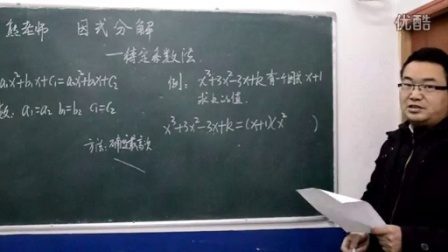 熊老师 因式分解
—待定系数法
a₁x²+b₁x+c₁=a₂x²+b₂x+c₂
a₁=a₂ b₁=b₂ c₁=c₂
方法:确定最高次
例:x³+3x²-3x+k有一个因式x+1
求k的值
x³+3x²-3x+k=(x+1)(x² )
优酷